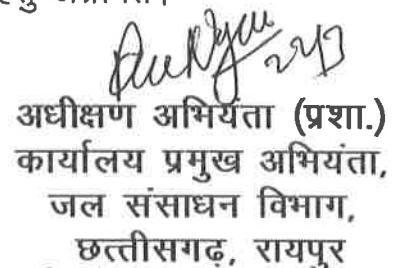 22/3
अधीक्षण अभियंता (प्रशा.)
कार्यालय प्रमुख अभियंता,
जल संसाधन विभाग,
छत्तीसगढ़, रायपुर